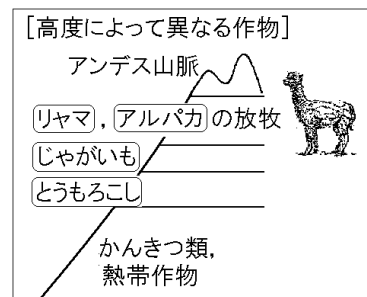 [高度によって異なる作物]
アンデス山脈
リャマ,アルパカの放牧
じゃがいも
とうもろこし
かんきつ類,
熱帯作物